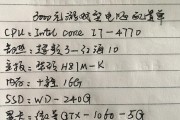 3000元游戏型电脑配置单
CPU: Intel core i7-4770
散热: 超频3-红海10
主板: 华硕 H81M-K
内存: 十铨 16G
SSD: WD-240G
显卡: 影驰GTX-1060-5G